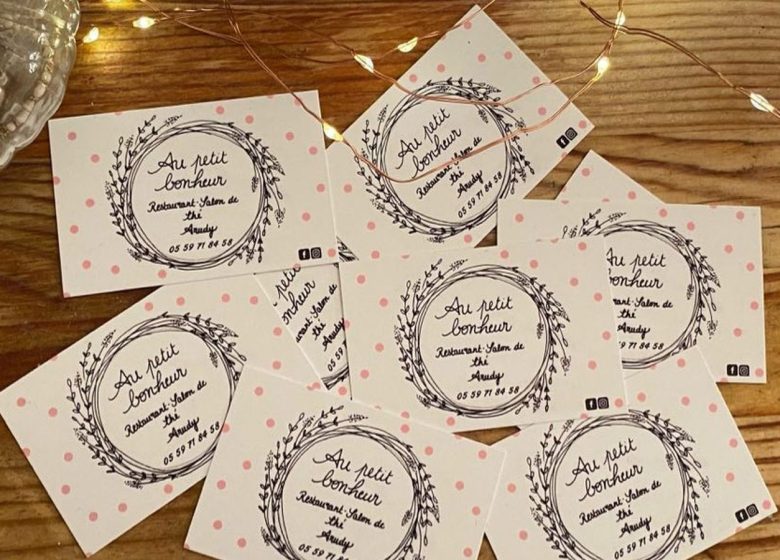 Au petit
bonheur
Restaurant·Salon de
thé
Arudy
05 59 71 84 58
Au petit
bonheur
Restaurant·Salon de
thé
Arudy
05 59 71 84 58
Au petit
bonheur
Restaurant·Salon de
thé
Arudy
05 59 71 84 58
bonheur
Salon de
thé
Arudy
59 71 84 58
petit
bonheur
Salon de
thé
Arudy
05 59
Au petit
bonheur
Restaurant·Salon de
thé
Arudy
05 59 71 84 58
Au petit
bonheur
Restaurant·Salon de
thé
Arudy
Au petit
bonheur
Restaurant·Salon de
thé
Arudy
05 59 71 84 58